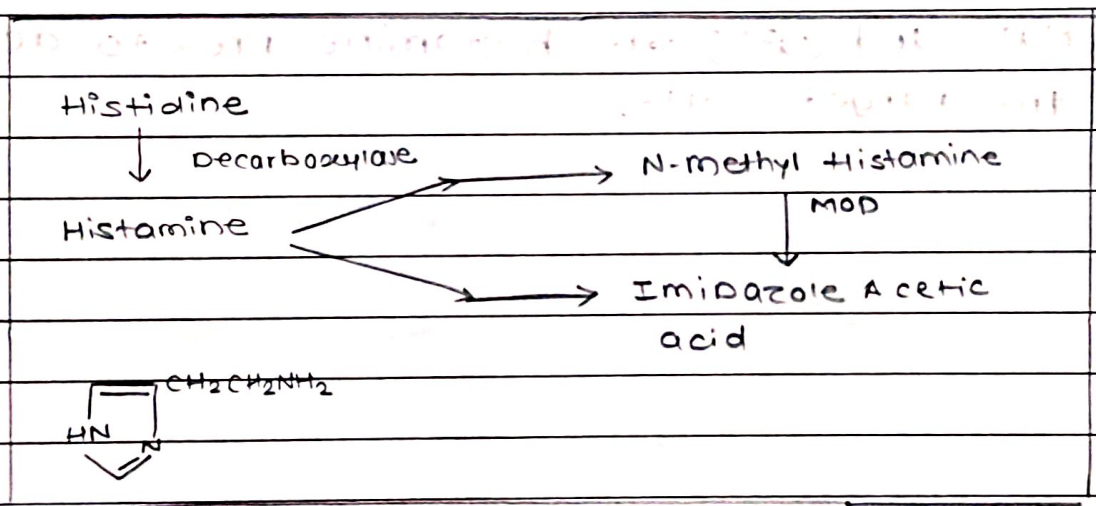 Histidine
Decarboxylase
N-methyl Histamine
MOD
Histamine
Imidazole Acetic
acid
CH2CH2NH2
HN
N